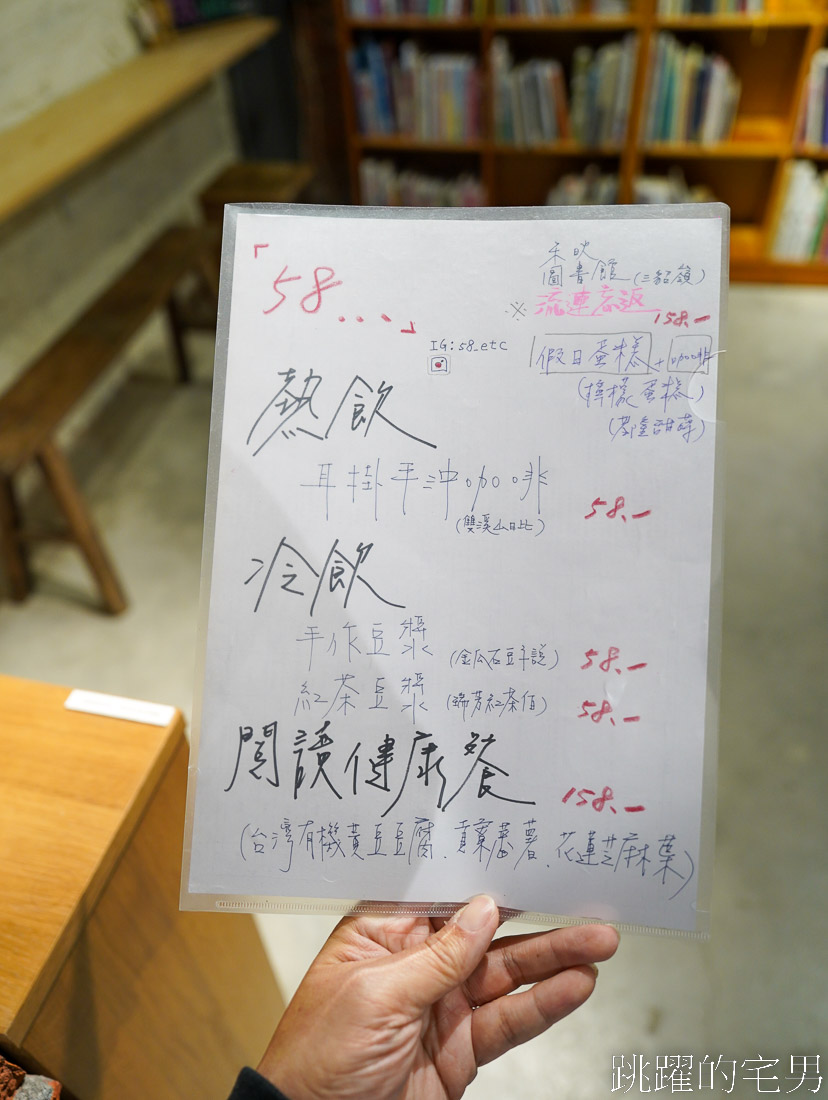 「58....」
禾映
圖書館(三貂嶺)
※流連忘返
158.-
IG:58_etc
假日蛋糕+咖啡
(檸檬蛋糕)
熱飲
耳掛手沖咖啡
(雙溪山日出)
58.-
冷飲
手作豆漿(金瓜石豆子說)58.-
紅茶豆漿(瑞芳紅茶伯)58.-
閱讀健康餐158.-
(台灣有機黃豆豆腐.貢寮番薯.花蓮芝麻葉)
跳躍的宅男